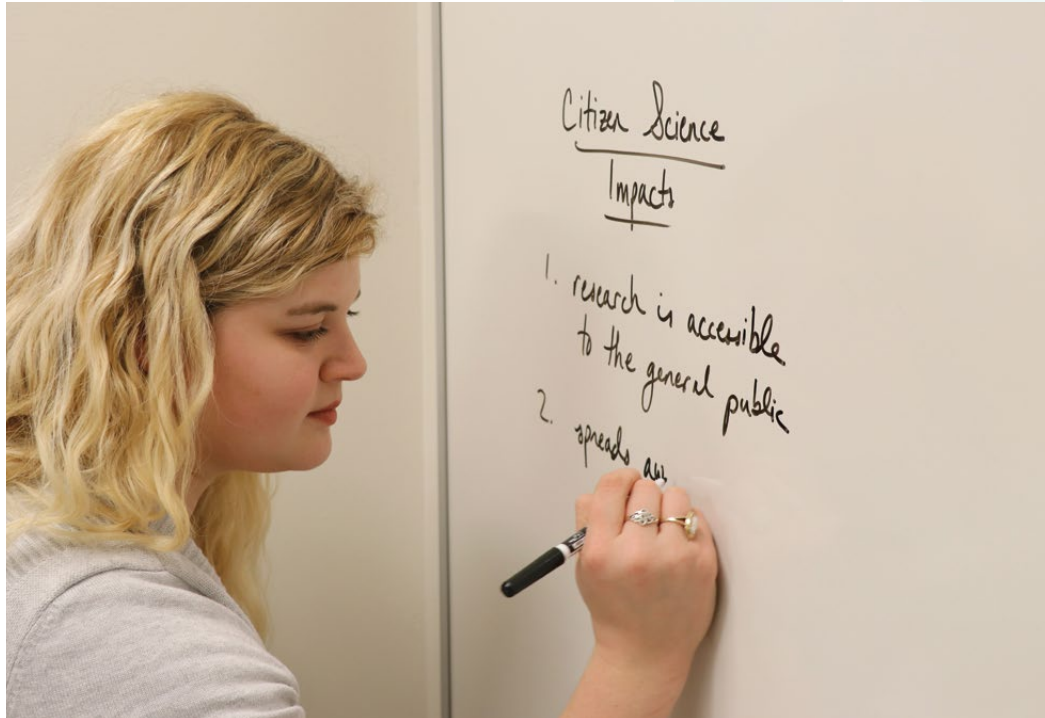 Citizen Science
Impacts
1. research is accessible
to the general public
2. spreads aw